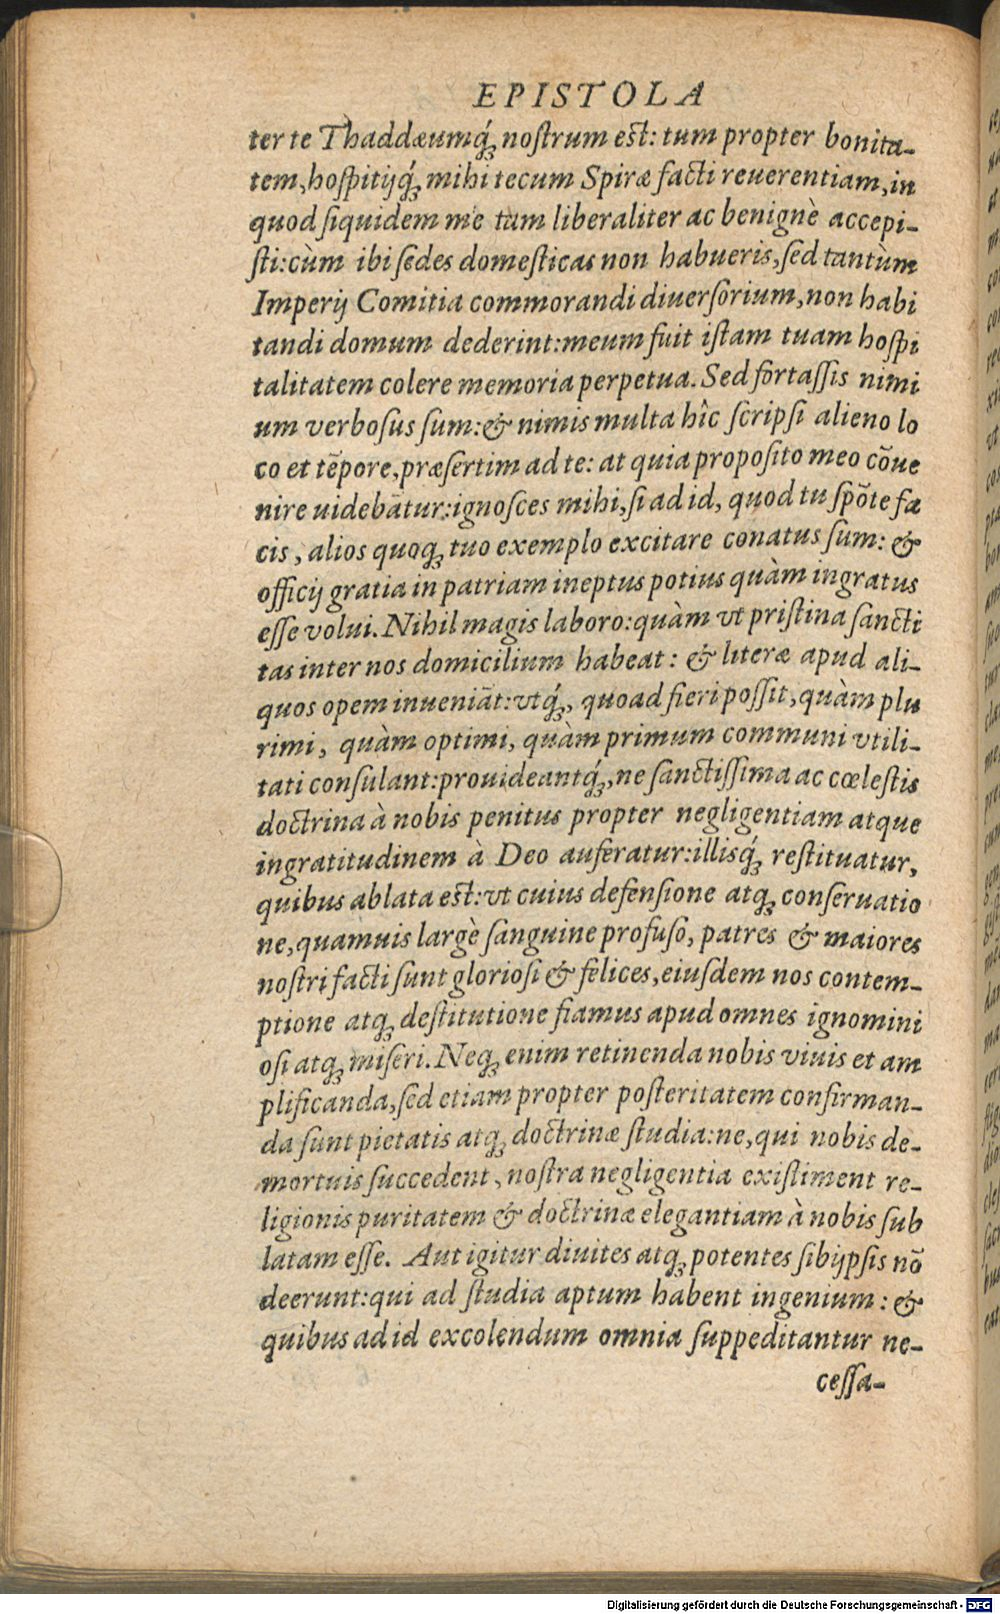 EPISTOLA
ter te Thaddæumq́; noſtrum eſt: tum propter bonita-
tem, hoſpitijq́; mihi tecum Spiræ facti reuerentiam, in
quod ſiquidem me tam liberaliter ac benignè accepi-
ſti: cùm ibi ſedes domeſticas non habueris, ſed tantùm
Imperij Comitia commorandi diuerſorium, non habi
tandi domum dederint: meum fuit iſtam tuam hoſpi
talitatem colere memoria perpetua. Sed fortaſſis nimi
um verboſus ſum: & nimis multa hîc ſcripſi alieno lo
co et tẽpore, præſertim ad te: at quia propoſito meo cõue
nire uidebãtur: ignoſces mihi, ſi ad id, quod tu ſpõte fa
cis, alios quoq; tuo exemplo excitare conatus ſum: &
officij gratia in patriam ineptus potius quàm ingratus
eſſe volui. Nihil magis laboro: quàm vt priſtina ſancti
tas inter nos domicilium habeat: & literæ apud ali-
quos opem inueniãt: vtq́;, quoad fieri poſſit, quàm plu
rimi, quàm optimi, quàm primum communi vtili-
tati conſulant: prouideantq́;, ne ſanctiſſima ac cœleſtis
doctrina à nobis penitus propter negligentiam atque
ingratitudinem à Deo auferatur: illisq́; reſtituatur,
quibus ablata eſt: vt cuius defenſione atq; conſeruatio
ne, quamuis largè ſanguine profuſo, patres & maiores
noſtri facti ſunt glorioſi & felices, eiuſdem nos contem-
ptione atq; deſtitutione fiamus apud omnes ignomini
oſi atq; miſeri. Neq; enim retinenda nobis viuis et am
plificanda, ſed etiam propter poſteritatem confirman-
da ſunt pietatis atq; doctrinæ ſtudia: ne, qui nobis de-
mortuis ſuccedent, noſtra negligentia exiſtiment re-
ligionis puritatem & doctrinæ elegantiam à nobis ſub
latam eſſe. Aut igitur diuites atq; potentes ſibijpſis nõ
deerunt: qui ad ſtudia aptum habent ingenium: &
quibus ad id excolendum omnia ſuppeditantur ne-
ceſſa-
Digitalisierung gefördert durch die Deutsche Forschungsgemeinschaft - DFG